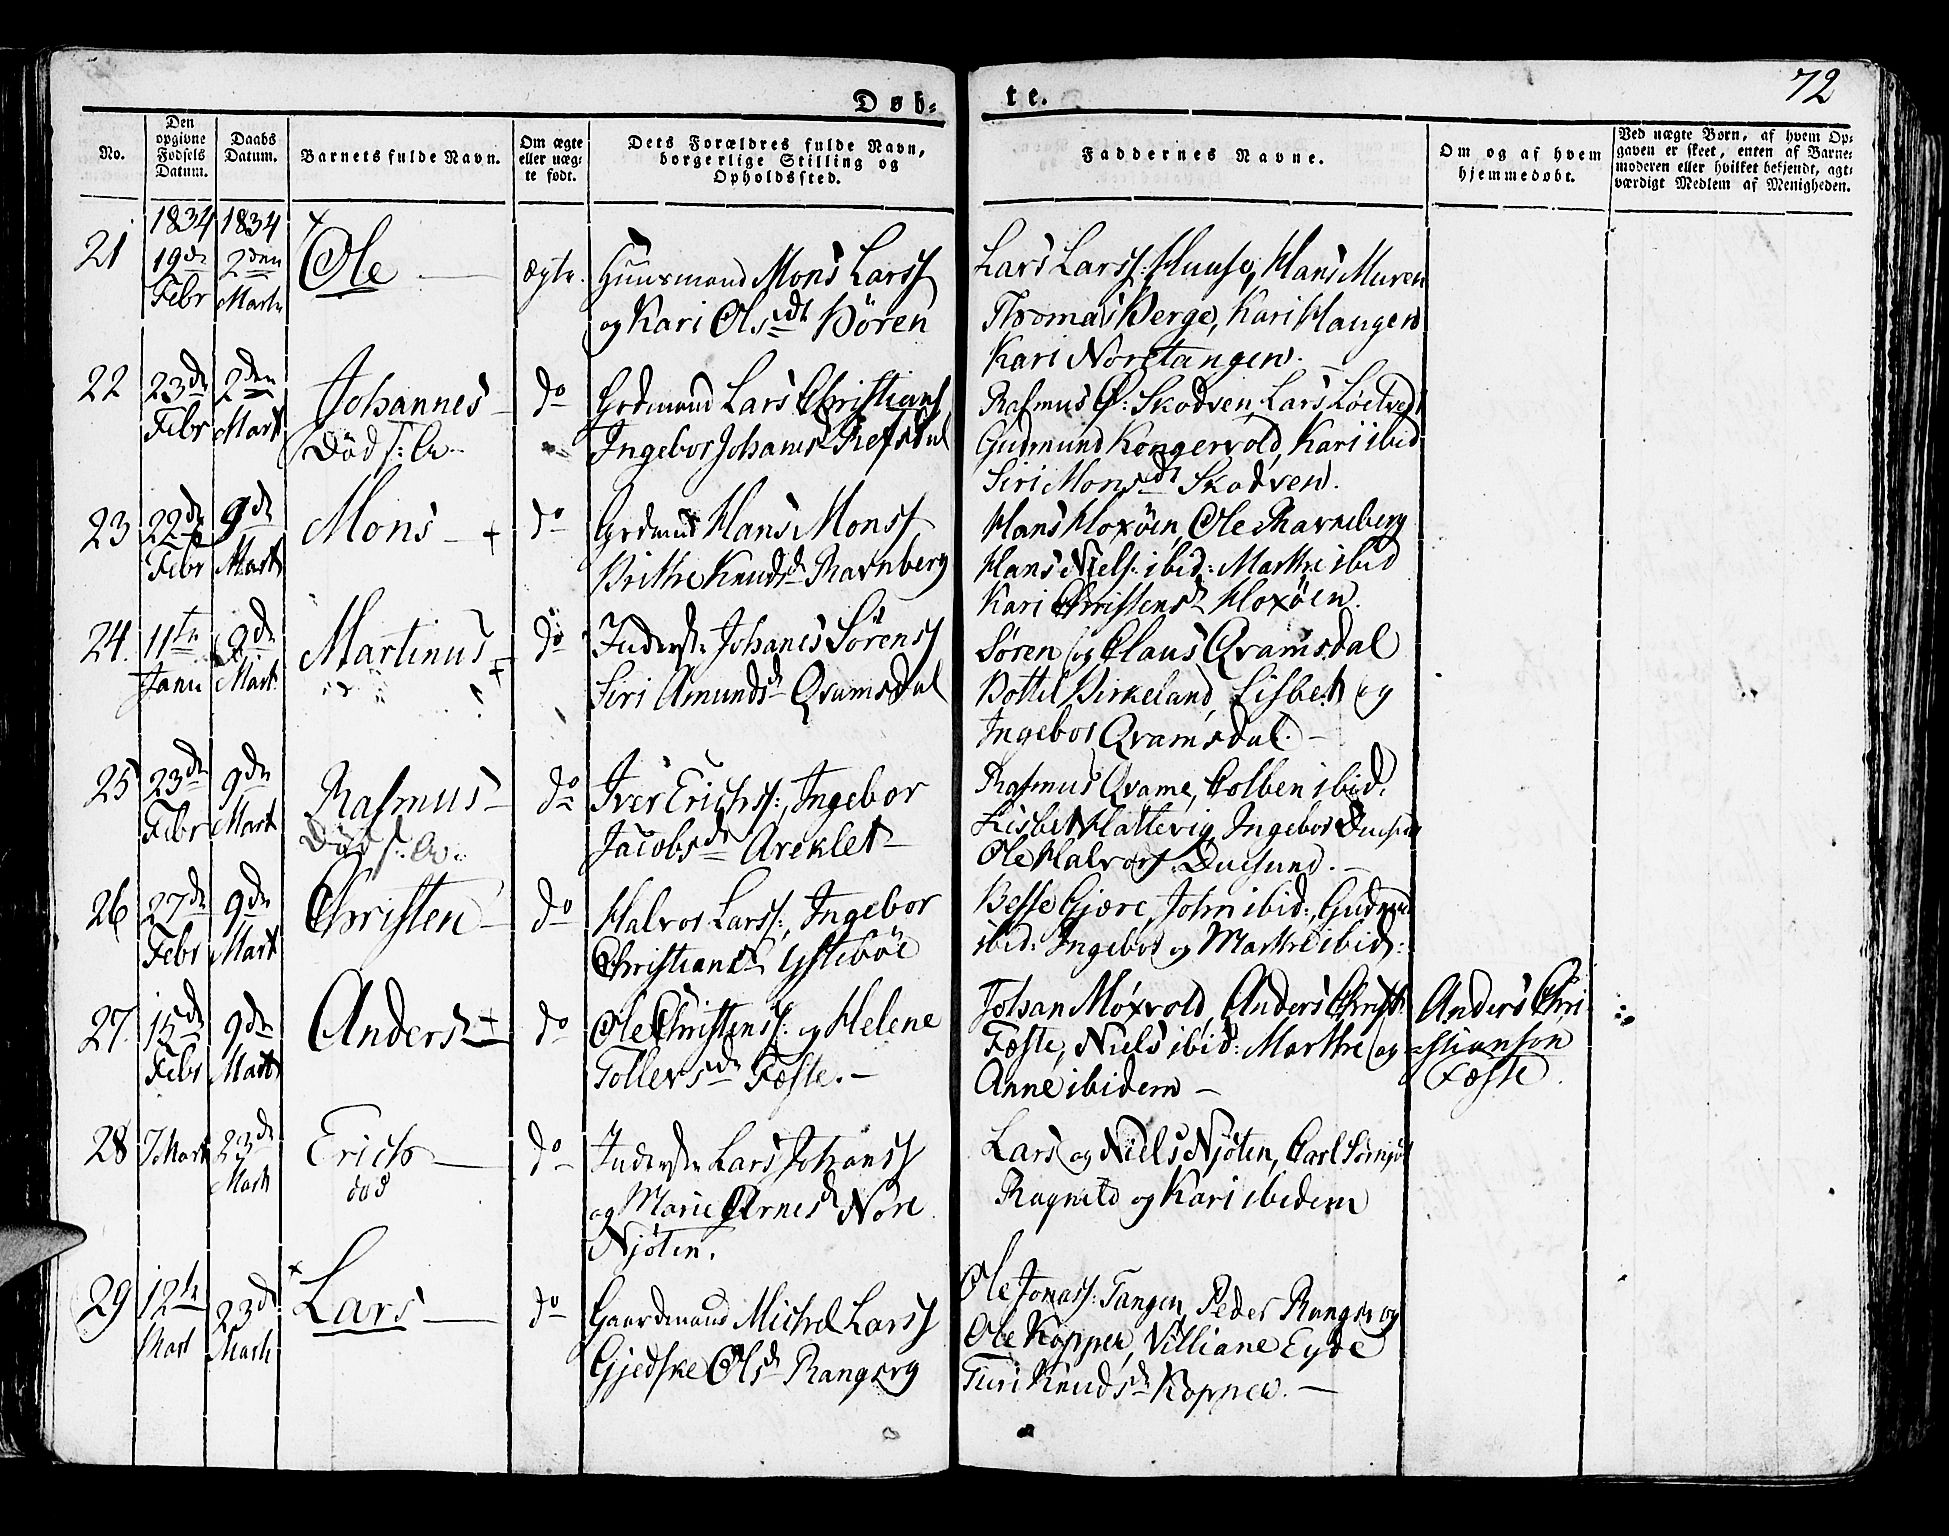 72
Døb=
te.
No.
Den opgivne Fødsels Datum.
Daabs Datum.
Barnets fulde Navn.
Om ægte eller uæg- te født.
Dets Forældres fulde Navn, borgerlige Stilling og Opholdssted.
Faddernes Navne.
Om og af hvem hjemmedøbt.
Ved uægte Børn, af hvem Op- gaven er skeet, enten af Barne- moderen eller hvilket bekjendt, agt- værdigt Medlem af Menigheden.
21
1834 19de Febr
1834 2den Marts
Ole
ægte.
Huusmand Mons Larss
og Kari Olsdt Bören
Lars Larss: Huuse, Hans Muren
Thomas Berge, Kari Haugen
Kari Noretangen.
22
23de Febr
2den Mart
Johannes
Död s: A
do
Grdmand Lars Christians
Ingebor Johansd Refsdal
Rasmus Ø: Skodven, Lars
Gudmund Kongervold, Kari ibid
Siri Monsdt Skodven.
23
22de Febr
9de Mart
Mons
do
Grdmand Hans Monss
Brithe Knudsd Ravnberg
Hans Kloxöen, Ole Ravneberg
Hans Niels: ibid: Marthe ibid
Kari Christensd Kloxöen.
24.
11te Janu
9de Mart
Martinus
do
Inderste Johanes Sörenss
Siri Amundsd Qvamsdal
Søren og Claus Qvamsdal
Bottel Birkeland, Lisbet og
Ingebor Qvamsdal
25
23de Febr
9de Mart
Rasmus
Död s: A
do
Iver Erichss:, Ingebor
Jacobsdt Areklet
Rasmus Qvame, Colben ibid.
Lisbet Hattevig, Ingebor
Ole Halvors Duesund.
26
27de Febr
9de Mart
Christen
do
Halvor Larss:, Ingebor
Christiansd Ystebøe
Besse Gjære, John ibid:, Gudmund
ibid: Ingebor og Marthe ibid:
27.
15de Febr
9de Mart
Anders
do
Ole Christenss: og Helene
Tollevsdt Fæste.
Johan Moxvold, Anders Christ:
Fæste, Niels ibid: Marthe og
Anne ibidem
Anders Chri-
stianson
Fæste.
28
7 Mart
23de Mart
Erich
död
do
Inderste Lars Johanss
og Marie Arnesd Nore
Njöten.
Lars og Niels Njöten, Carl
Ragnild og Kari ibidem
29
12te Mart
23de Mart
Lars
do
Gaardmand Michel Larss
Gjedske Olsd Rangerg
Ole Jonass: Tangen, Peder Ranger og
Ole Kopper, Villiane Eyde
Turi Knudsd Kopper.